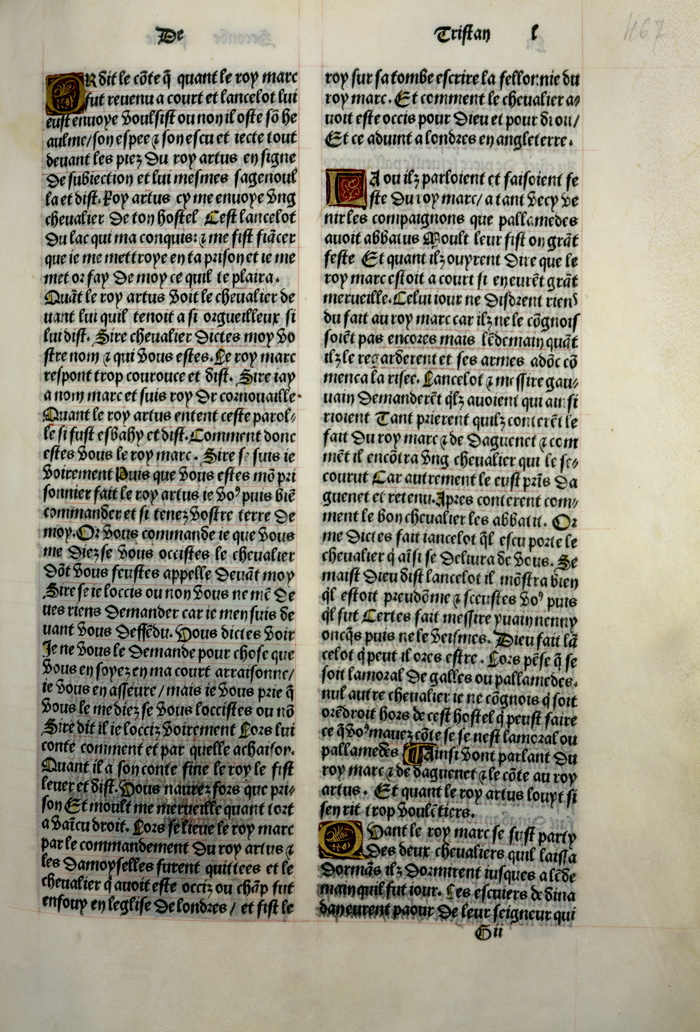 De
Tristan l
467
OR dit le cōte q̄ quant le roy marc
fut reuenu a court et lancelot lui
eust enuoye voulsist ou non il oste sō he
aulme/son espee ⁊ son escu et iecte tout
deuant les piez du roy artus en signe
de subiection et lui mesmes sagenoul
la et dist. Roy artus cy me enuoye vng
cheualier de ton hostel Cest lancelot
du lac qui ma conquis: ⁊ me fist fiācer
que ie me mettroye en ta prison et ie me
met or fay de moy ce quil te plaira.
Quāt le roy artus voit le cheualier de
uant lui quil tenoit a si orgueilleux si
lui dist. Sire cheualier dictes moy vo
stre nom ⁊ qui vous estes. Le roy marc
respont trop courouce et dist. Sire iay
a nom marc et suis roy de cornouaille.
Quant le roy artus entent ceste parol⸗
le si fust esbahy et dist. Comment donc
estes vous le roy marc. Sire se suis ie
voirement Puis que vous estes mō pri
sonnier fait le roy artus ie voꝰ puis biē
commander et si tenez vostre terre de
moy. Or vous commande ie que vous
me diez se vous occistes le cheualier
dōt vous feustes appelle deuāt moy
Sire se ie loccis ou non vous ne mē de
ues riens demander car ie men suis de
uant vous deffēdu. Vous dictes voir
Je ne vous le demande pour chose que
vous en soyez en ma court arraisonne/
ie vous en asseure/mais ie vous prie q̄
vous le me diez se vous loccistes ou nō
Sire dit il ie locciz voirement Lors lui
conte comment et par quelle achaison.
Quant il a son conte fine le roy le fist
leuer et dist. Vous naurez fors que pri⸗
son Et moult me merueille quant tort
a vaīcu droit. Lors se lieue le roy marc
par le commandement du roy artus ⁊
les damoyselles furent quittees et le
cheualier q̄ auoit este occiz ou chāp fut
enfouy en leglise de londres / et fist le
roy sur sa tombe escrire la fellonnie du
roy marc. Et comment le cheualier a⸗
uoit este occis pour dieu et pour droit/
Et ce aduint a londres en angleterre.
LA ou ilz parloient et faisoient fe
ste du roy marc/a tant vecy ve
nir les compaignons que pallamedes
auoit abbatus Moult leur fist on grāt
feste Et quant ilz ouyrent dire que le
roy marc estoit a court si en eurēt grāt
merueille. Celui iour ne disdrent riens
du fait au roy marc car ilz ne le cōgnois
soiēt pas encores mais lēdemain quāt
ilz le regarderent et ses armes adōc cō
menca la risee. Lancelot ⁊ messire gau⸗
uain demanderēt q̄lz auoient qui ainsi
rioient Tant prierent quilz conterēt le
fait du roy marc ⁊ de daguenet ⁊ com
mēt il encōtra vng cheualier qui le se⸗
courut Car autrement le eust prīs da
guenet et retenu. Apres conterent com⸗
ment le bon cheualier les abbatit. Or
me dictes fait lancelot q̄l escu porte le
cheualier q̄ aīsi se deliura de vous. Se
maist dieu dist lancelot il mōstra bien
q̄l estoit preudōme ⁊ sceustes voꝰ puis
q̄l fut Certes fait messire yuain nenny
oncq̄s puis ne le veismes. Dieu fait lā
celot q̄ peut il ores estre. Lors pēse q̄ se
soit lamoral de galles ou pallamedes.
nul autre cheualier ie ne cōgnois q̄ soit
orēdroit hors de cest hostel q̄ peust faire
ce q̄ voꝰ mauez cōte se se nest lamoral ou
pallamedes Ainsi vont parlant du
roy marc ⁊ de daguenet ⁊ le cōte au roy
artus. Et quant le roy artus louyt si
sen rit trop voulētiers.
QVant le roy marc se fust party
des deux cheualiers quil laissa
dormās ilz dormirent iusques a lēde
main quil fut iour. Les escuiers de dina
dan eurent paour de leur seigneur qui
Gii